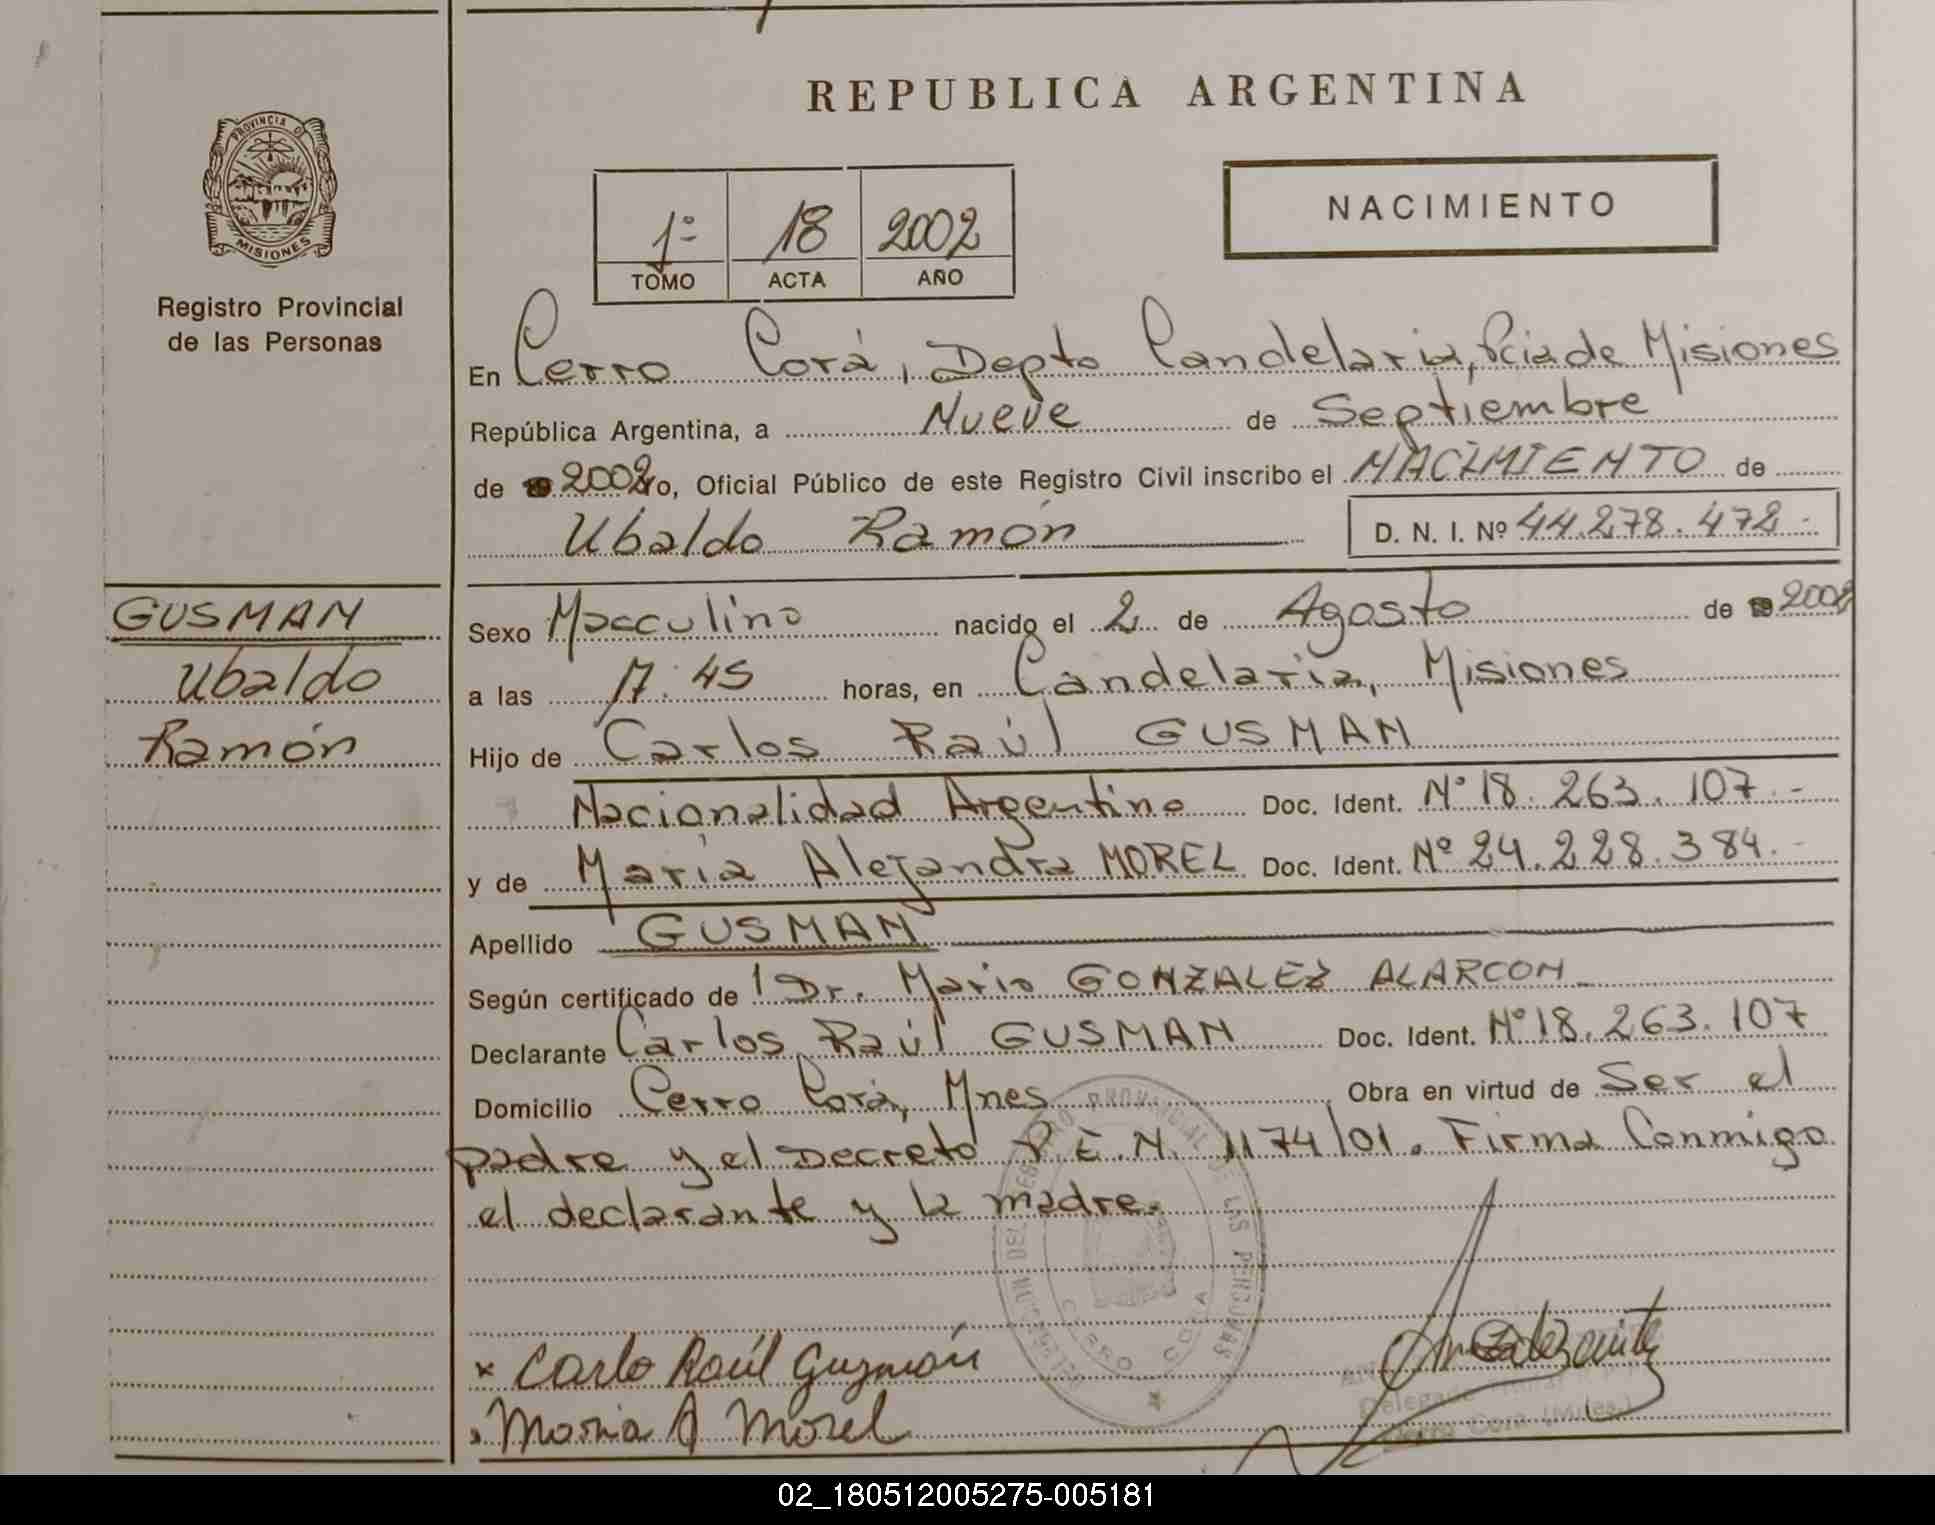 REPUBLICA ARGENTINA
PROVINCIA DE
MISIONES
Registro Provincial
de las Personas
1º 18 2002
TOMO ACTA AÑO
NACIMIENTO
En Cerro Corá, Depto Candelaria, Pcia de Misiones
República Argentina, a Nueve de Septiembre
de 2002 Yo, Oficial Público de este Registro Civil inscribo el NACIMIENTO de
Ubaldo Ramón D. N. I. Nº 44.278.472.-
GUSMAN
Ubaldo
Ramón
Sexo Masculino nacido el 2 de Agosto de 2002
a las 17:45 horas, en Candelaria, Misiones
Hijo de Carlos Raúl GUSMAN
Nacionalidad Argentino Doc. Ident. Nº 18.263.107.-
y de María Alejandra MOREL Doc. Ident. Nº 24.228.384.-
Apellido GUSMAN
Según certificado de Dr. Mario GONZALEZ ALARCON
Declarante Carlos Raúl GUSMAN Doc. Ident. Nº 18.263.107
Domicilio Cerro Corá, Mnes Obra en virtud de Ser el
padre y el Decreto P.E.N. 1174/01. Firma Conmigo
el declarante y la madre.
PROVINCIAL DE LAS PERSONAS
CERRO CORA
x Carlo Raúl Guzmán
Maria A Morel
Cerro Cora (Mnes.)
02_180512005275-005181